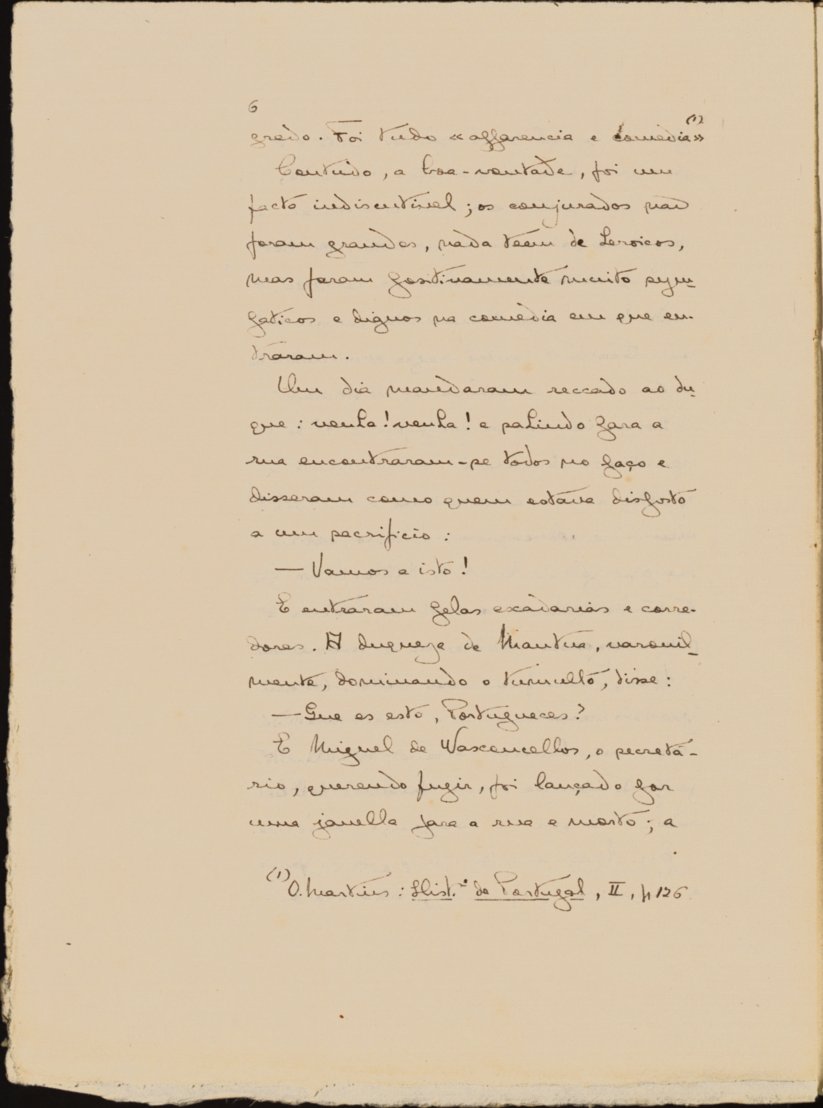 6
gredo. Foi tudo «apparencia e comedia» (1)
Contudo, a boa-vontade, foi um
facto indiscutivel; os conjurados não
foram grandes, nada teem de heroicos,
mas foram positivamente muito sym-
paticos e dignos na comédia em que en-
tráram.
Um dia mandaram reccado ao du-
que: venha! venha! e sahindo para a
rua encontraram-se todos no paço e
disseram como quem estava disposto
a um sacrificio:
— Vamos a isto!
E entraram pelas escadarias e corre-
dores. A duqueza de Mantua, varonil-
mente, dominando o tumulto, disse:
— Que es esto, Portugueces?
E Miguel de Vasconcellos, o secretá-
rio, querendo fugir, foi lançado por
uma janella para a rua e morto; a
(1) O. Martins: Hist.ª de Portugal, II, p 126